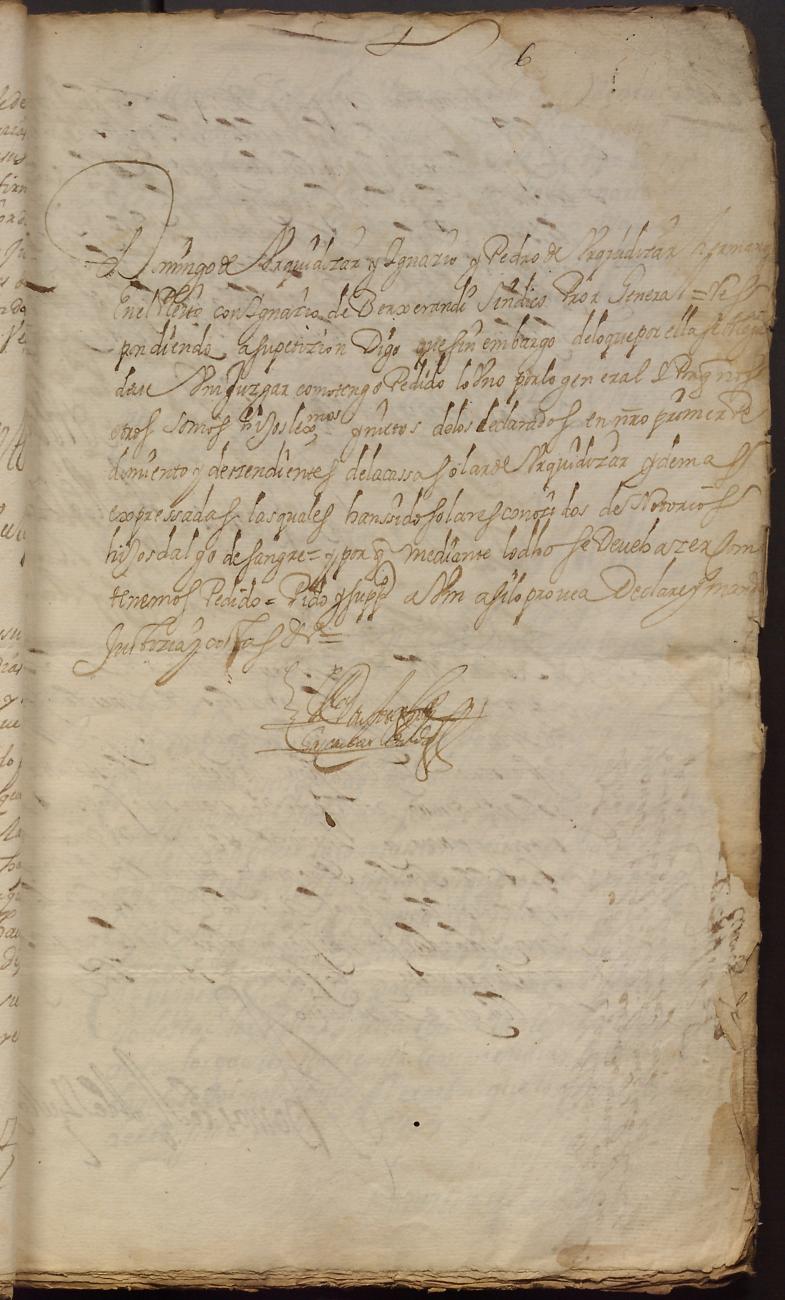 6
Domingo de Urquidizar y Ignacio y Pedro de Urquidizar hermanos
En el Pleito con Ignacio de Berxerandi Sindico Pror General = Res
pondiendo a supetizion Digo que sin embargo deloqueporella
deue Vm juzgar como tengo Pedido lo Vno por lo general
otros somos hijos lexmos y nietos delos declarados en nro primer Pe
dimento y deszendientes dela cassa solar de Urquidizar y demas
expressadas las quales han sido solares conozidos de Notorios
hijos dalgo de sangre = y por q mediante lo dho se Deue hazer Como
tenemos Pedido = Pido y suppco a Vm asilo prouea Declare y mande
Justizia y costas &ra =